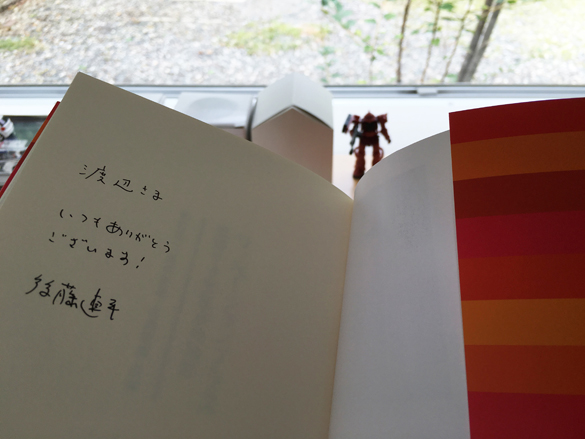 渡辺さま
いつもありがとう
ございます!
後藤連平